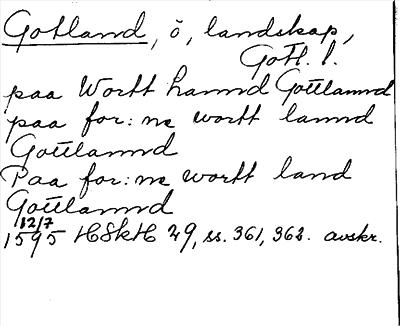 Gotland, ö, landskap,
Gotl. l.
paa Wortt Lannd Gottlannd
paa for: ne wortt lannd
Gottlannd
Paa for: ne wortt land
Gottlannd
12/7
1595 HSkH 29, ss. 361, 362. avskr.